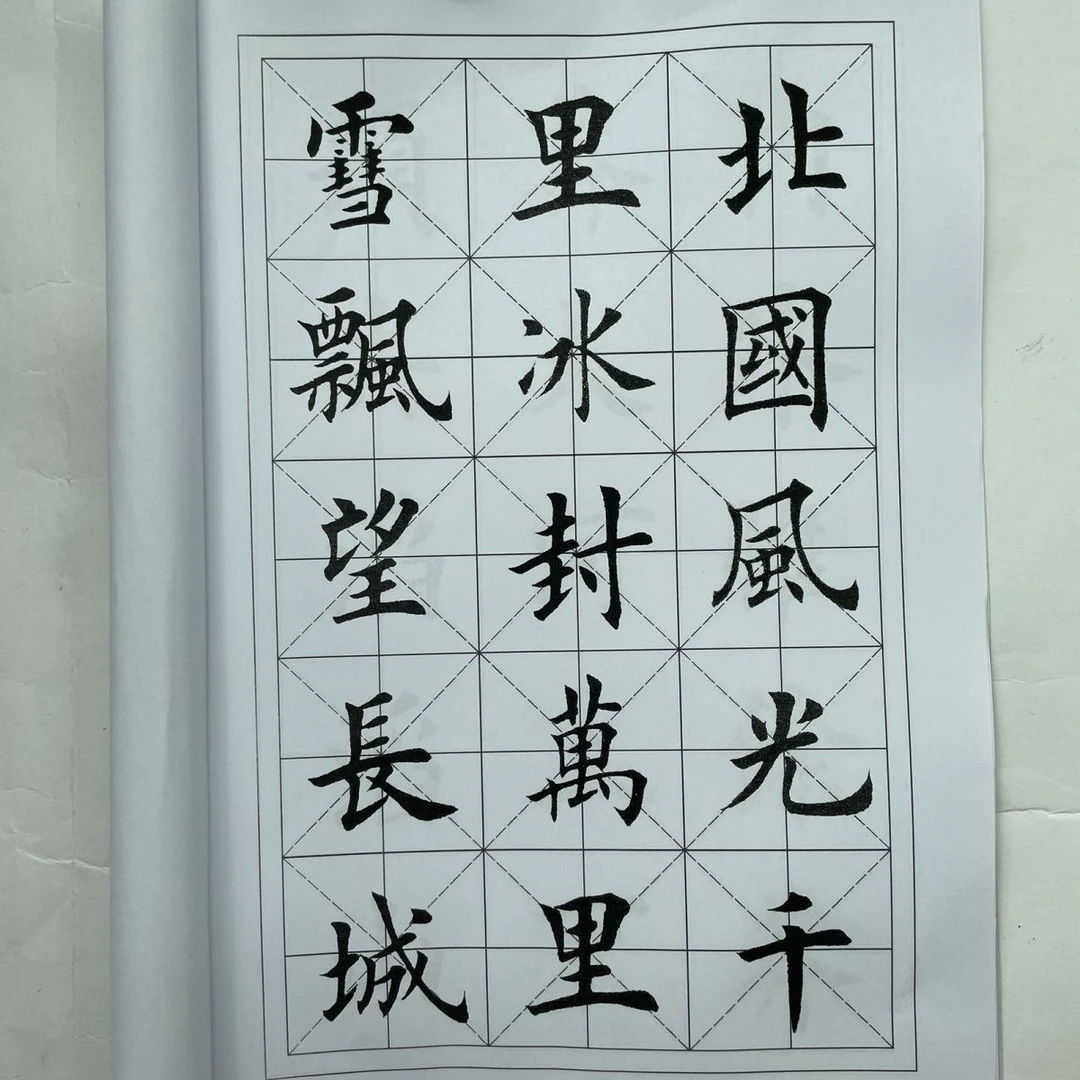 北國風光千
里冰封萬里
雪飄望長城